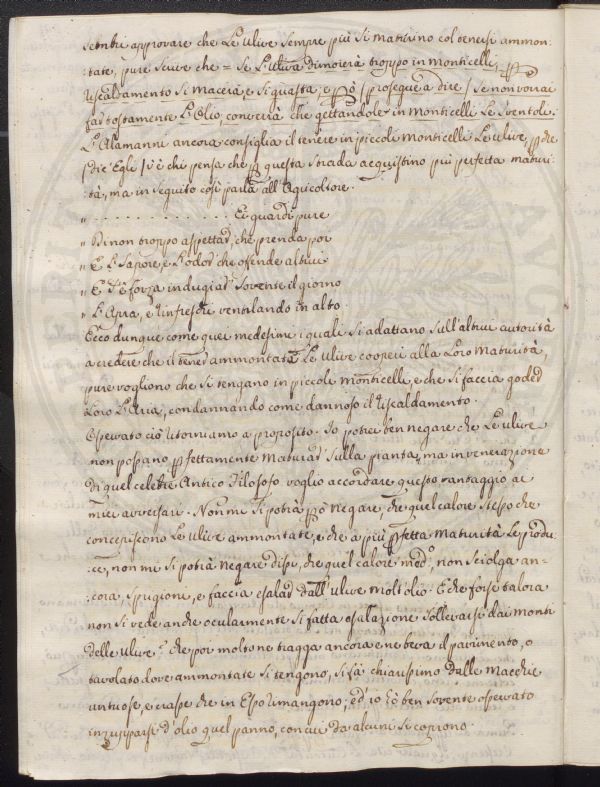 sembri approvare che Le Ulive sempre più Si maturino col tenersi ammon:
:tate, pure scrive che = Se L'Uliva dimorerà troppo in monticelli, p
riscaldamento Si macera, e Si guasta; e pò (prosegue a dire) Se non vorrai
far tostamente L'Olio, converrà che gettandole in monticelli Le Sventoli:
L'Alamanni ancora consiglia il tenere in piccoli monticelli Le ulive, pche
(dic'Egli) v'è chi pensa che p questa strada acquistino più perfetta maturi:
:tà, ma in seguito così parla all'Agricoltore.
" . . . . . . . . . . . . . . . Et guardi pure
" Di non troppo aspettar, che prenda poi
" E L Sapore, e L'odor che offende altrui
" E d'è forza indugiar Sovente il giorno
" L'Apra, e rinfreschi ventilando in alto.
Ecco dunque come quei medesimi i quali Si adattano Sull'altrui autorità
a credere che il tener ammontate Le ulive cooperi alla Loro maturità,
pure vogliono che Si tengano in piccoli monticelli, e che Si faccia goder
Loro L'Aria, condannando come dannoso il riscaldamento.
Osservato ciò ritorniamo a proposito. Io potrei ben negare che Le ulive
non possano pfettamente maturar Sulla pianta, ma in venerazione
di quel celebre Antico Filosofo voglio accordare questo vantaggio ai
miei avversari. Non mi Si potrà pò negare, che quel calore Stesso che
concepiscono Le ulive ammontate, e che a più pfetta maturità Le produ:
:ce, non mi Si potrà negare dissi, che quel calore med.o, non Sciolga an:
:cora, Sprigioni, e faccia esalar dall'ulive molt'olio. E che forse talora
non Si vede anche ocularmente Si fatta esalazione Sollevarsi dai monti
delle ulive? che poi molto ne tragga ancora e ne beva il pavimento, o
tavolato dove ammontate Si tengono, Si fà chiarissimo dalle Macchie
untuose, e crasse che in Esso rimangono; ed io hò ben Sovente osservato
inzupparsi d'olio quel panno, con cui da alcuni Si coprono.